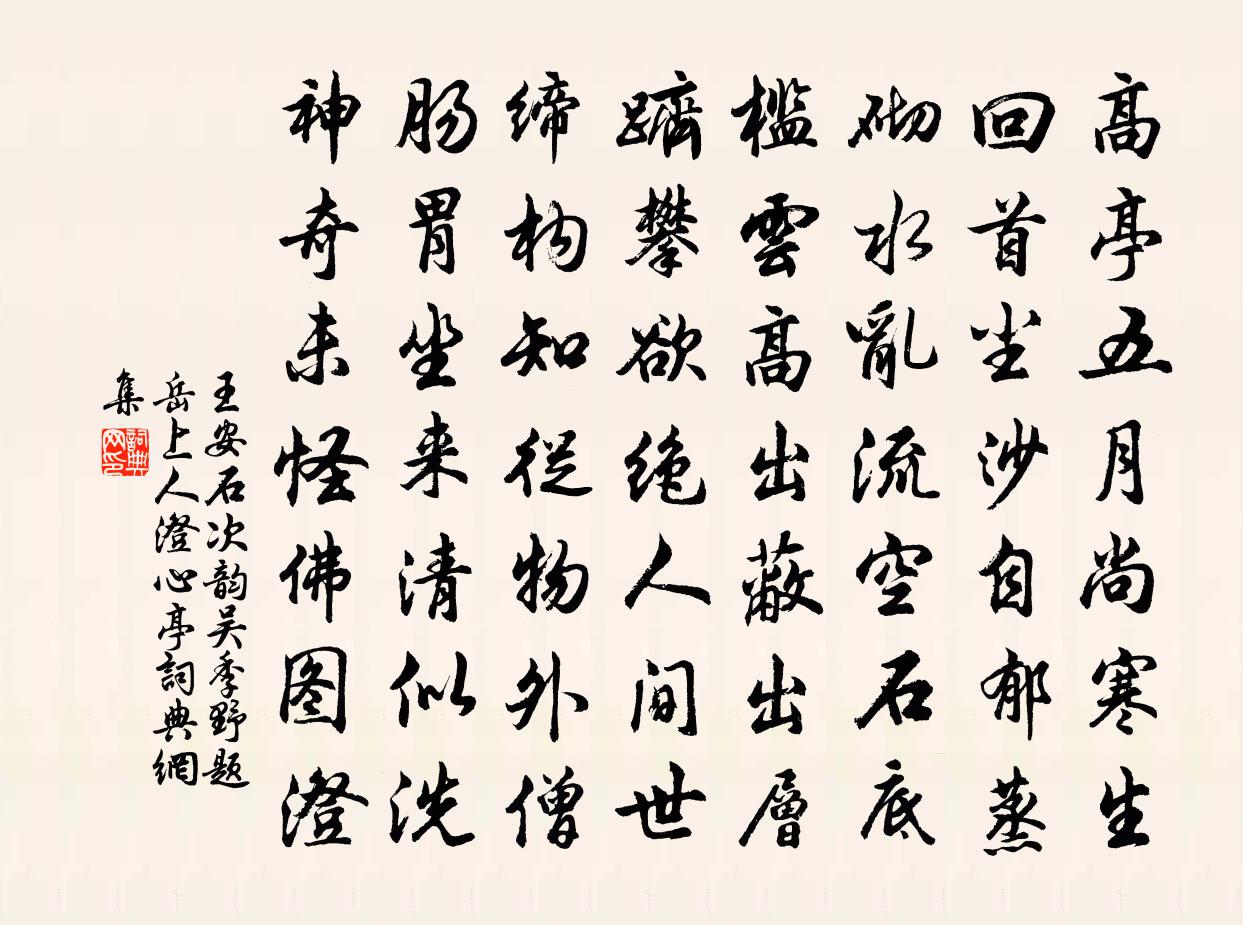 高亭五月尚寒生
回首尘沙自郁蒸
砌水亂流空石底
檻雲高出蔽出層
躋攀欲绝人间世
缔构知從物外僧
肠胃坐来清似洗
神奇未怪佛图澄
王安石次韵吴季野题
岳上人澄心亭詞典網
集
詞典网印